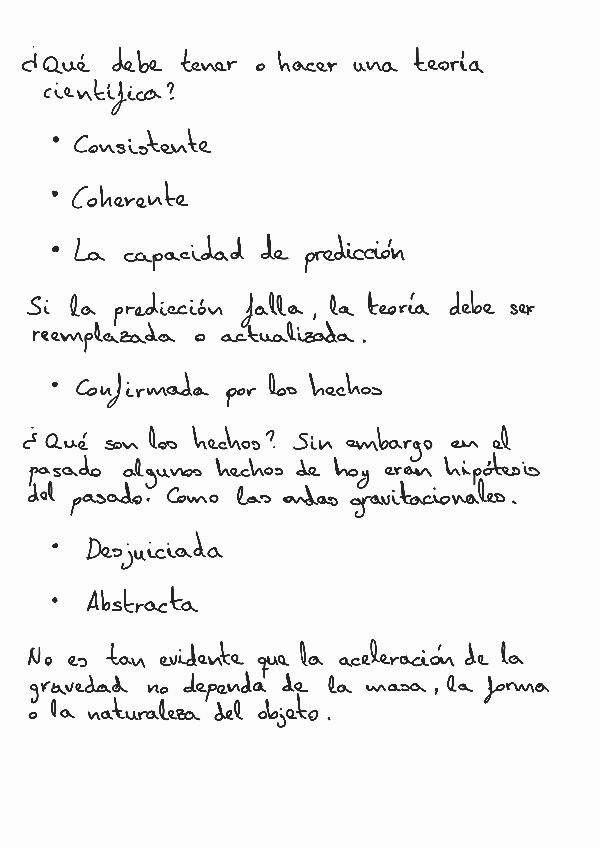 ¿Qué debe tener o hacer una teoría
científica?
• Consistente
• Coherente
• La capacidad de predicción
Si la predicción falla, la teoría debe ser
reemplazada o actualizada.
• Confirmada por los hechos
¿Qué son los hechos? Sin embargo en el
pasado algunos hechos de hoy eran hipótesis
del pasado. Como las ondas gravitacionales.
• Desjuiciada
• Abstracta
No es tan evidente que la aceleración de la
gravedad no dependa de la masa, la forma
o la naturaleza del objeto.